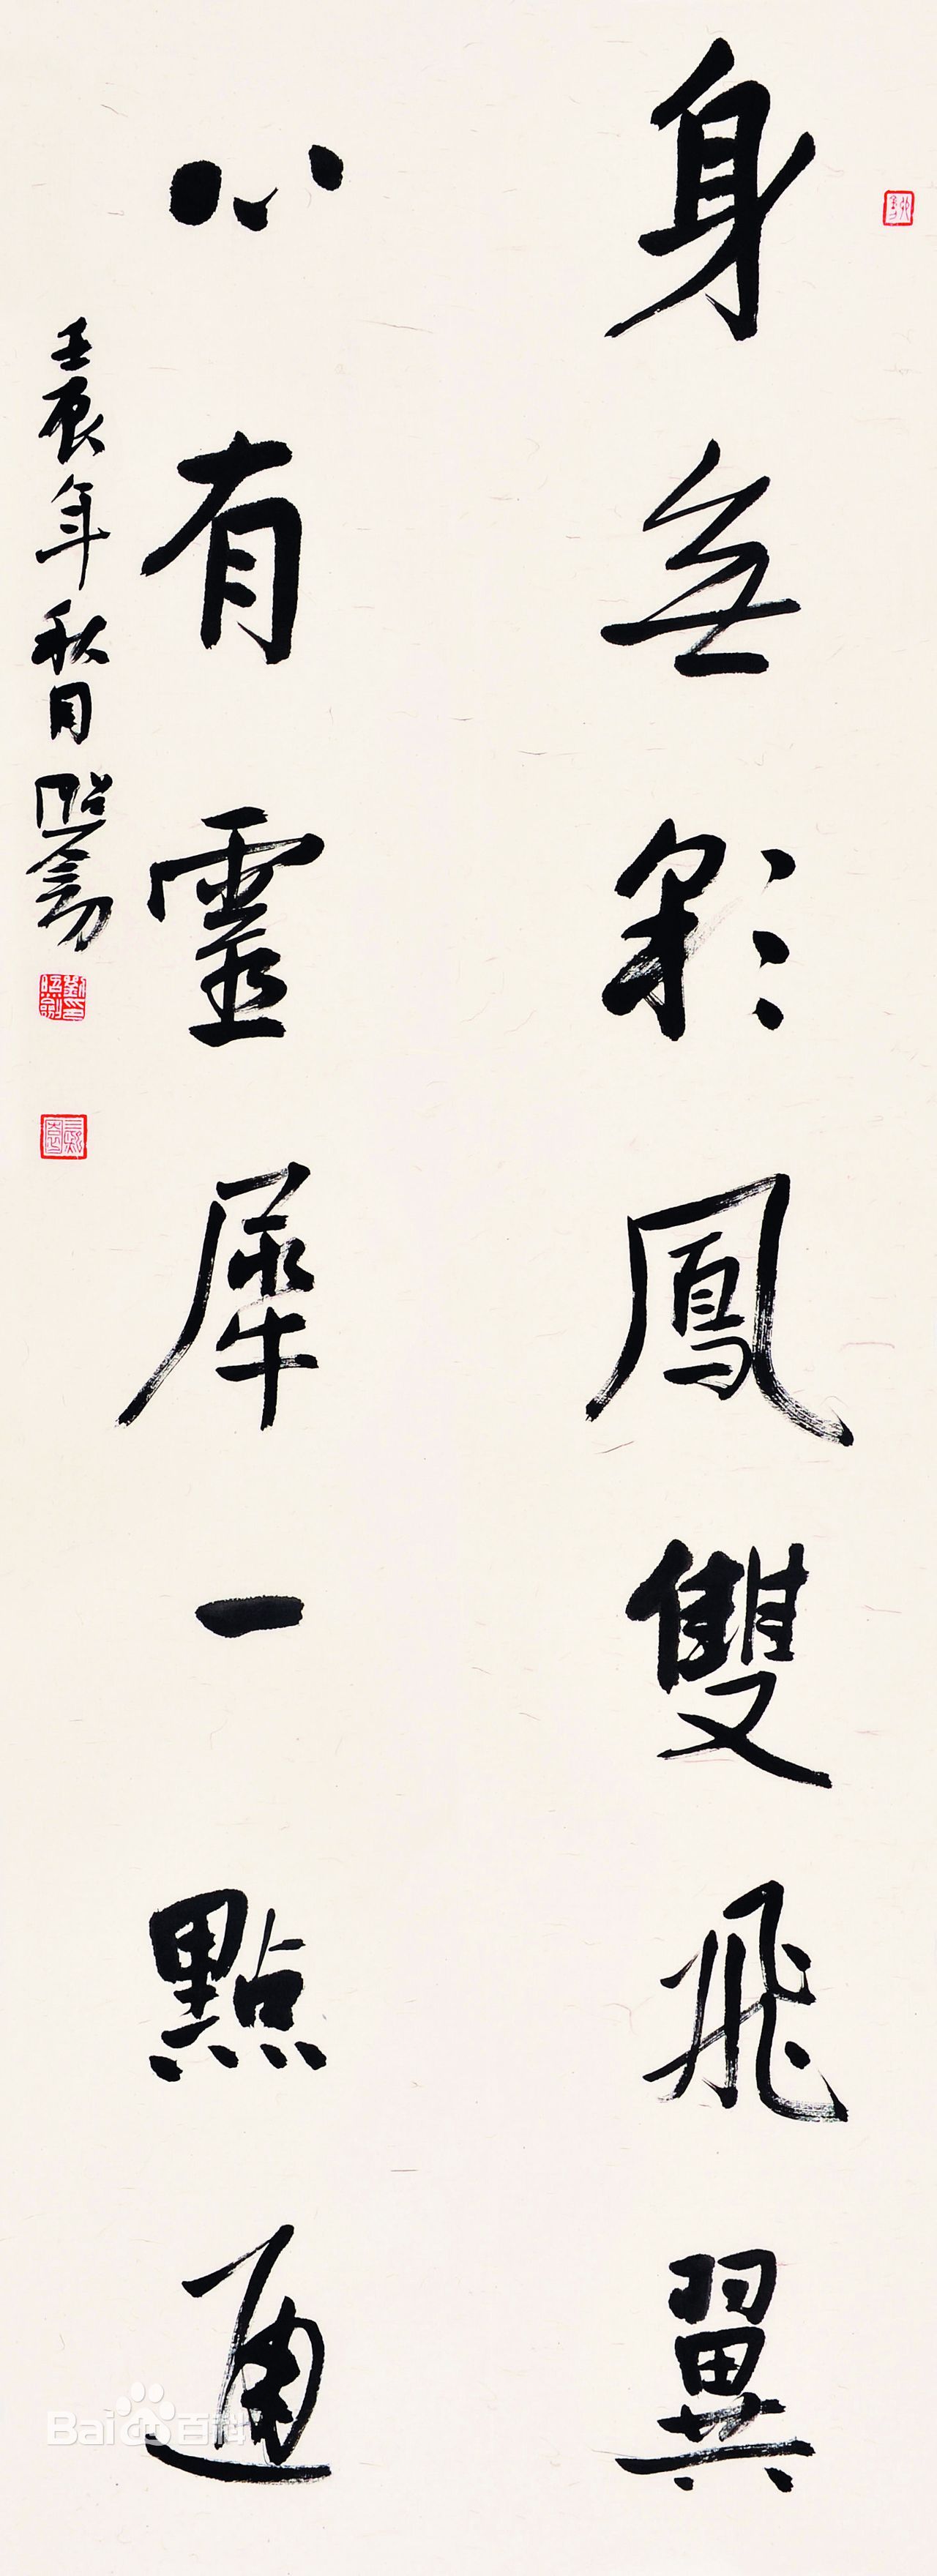 身無彩鳳雙飛翼
心有靈犀一點通
壬辰年秋月
Bai百科